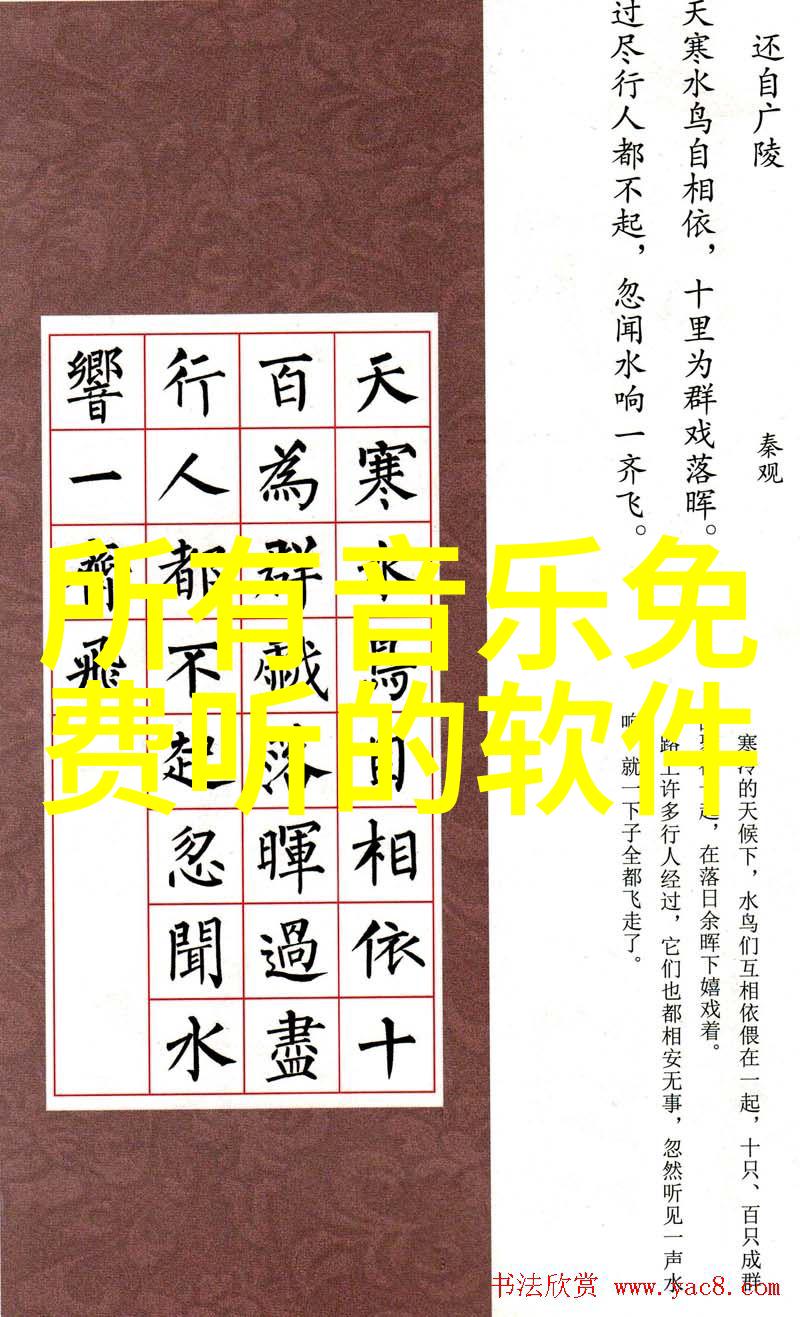 还自广陵
秦观
天寒水鸟自相依，十里为群戏落晖。
过尽行人都不起，忽闻水响一齐飞。
天寒水鳥自相依十
百為群戲落暉過盡
行人都不起忽聞水
響一齊飛
所有音乐免
费听的软件
寒冷的天候下，水鸟们互相依偎在一起，十只、百只成群
起，在落日余晖下嬉戏着。
路上许多行人经过，它们也都相安无事，忽然听见一声水
响，就一下子全都飞走了。
书法欣赏 www.yac8.com